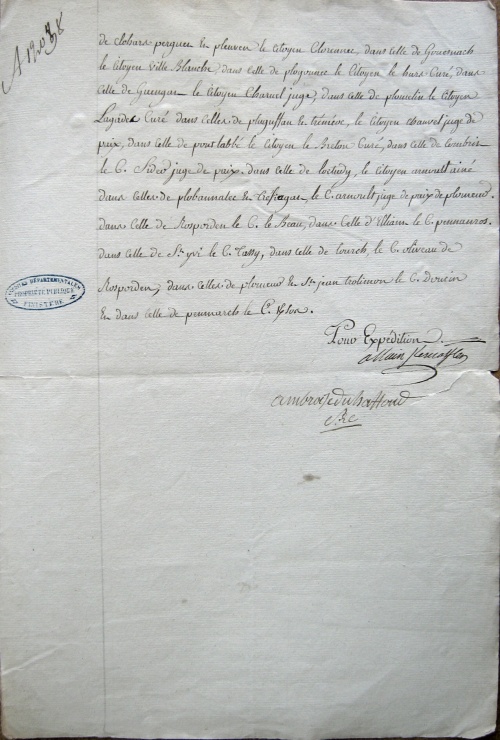 de Clohars perguet & pleuven le citoyen Cloreanec, dans celle de Gouesnach
le Citoyen Ville Blanche, dans celle de plogonnec le Citoyen le bars Curé, dans
Celle de Guengat le Citoyen Charuel juge, dans celle de plomelin le Citoyen
Lagadec Curé dans celles de pluguffan & tréméoc, le citoyen chauvel juge de
paix, dans celle de pont labbé le Citoyen le Breton Curé, dans celle de Combrit
le C. juge de paix, dans celle de loctudy, le citoyen arnoult ainé
dans celles de plobannalec & treffiagat le C. arnoult juge de paix de plomeur.
dans Celle de Rosporden le C. le Beau, dans Celle d'Elliant le C. pennanros.
dans celle de St. yvi le C. Tassy, dans celle de tourch le C. oliveau de
Rosporden, dans celles de plomeur & St. jean trolimon le C. doncin
& dans celle de penmarch le Cn.
Pour Expédition
allain
ARCHIVES DÉPARTEMENTALES
PROPRIÉTÉ PUBLIQUE
FINISTÈRE